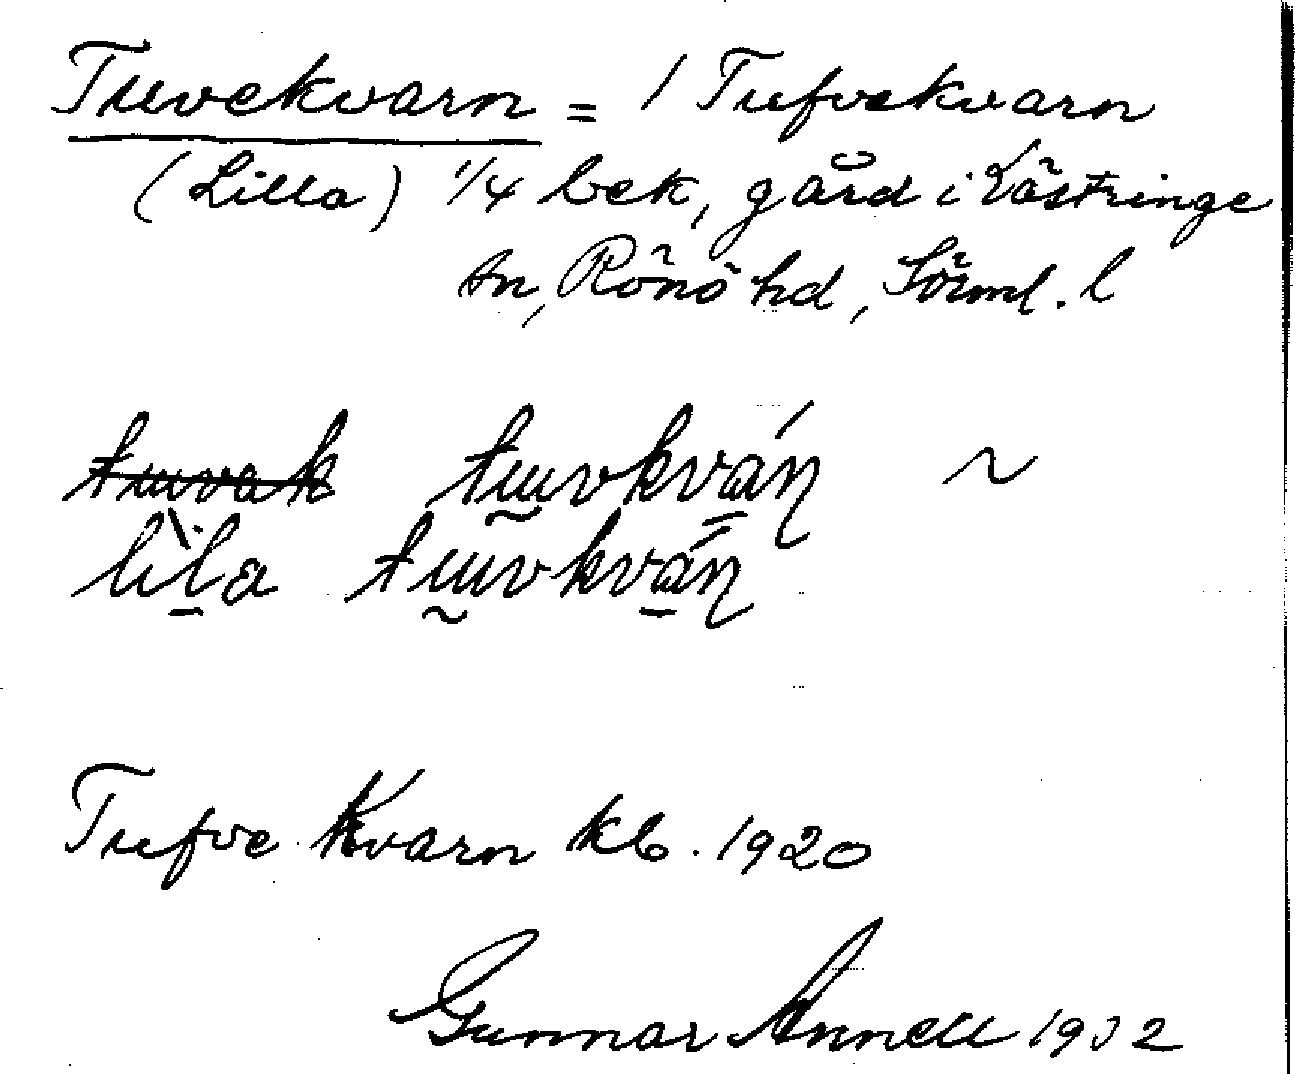 Tuvekvarn = 1 Tufvekvarn
(Lilla) 1/4 bek, gård i Lästringe
sn, Rönö hd, Sörml. l
tuvak tuvkván ~
lila tuvkván
Tufve Kvarn kb. 1920
Gunnar Annell 1932